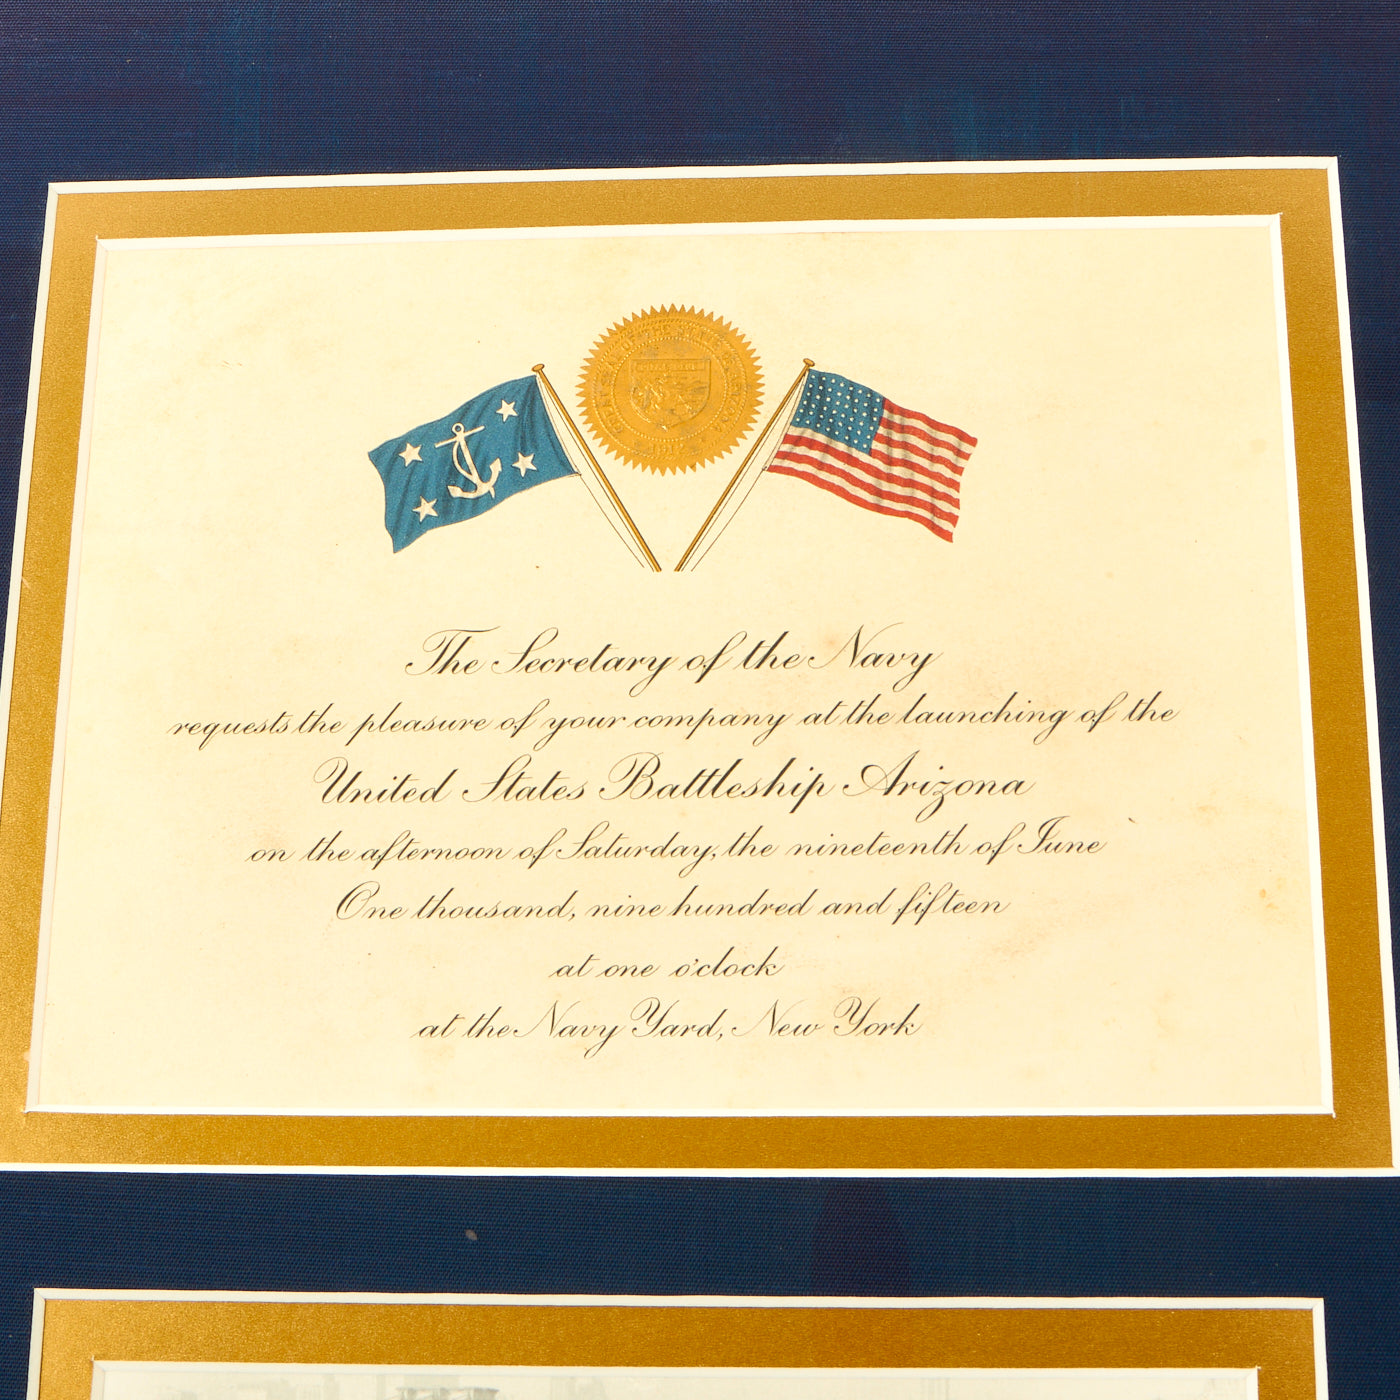 The Secretary of the Navy
requests the pleasure of your company at the launching of the
United States Battleship Arizona
on the afternoon of Saturday, the nineteenth of June
One thousand, nine hundred and fifteen
at one o'clock
at the Navy Yard, New York